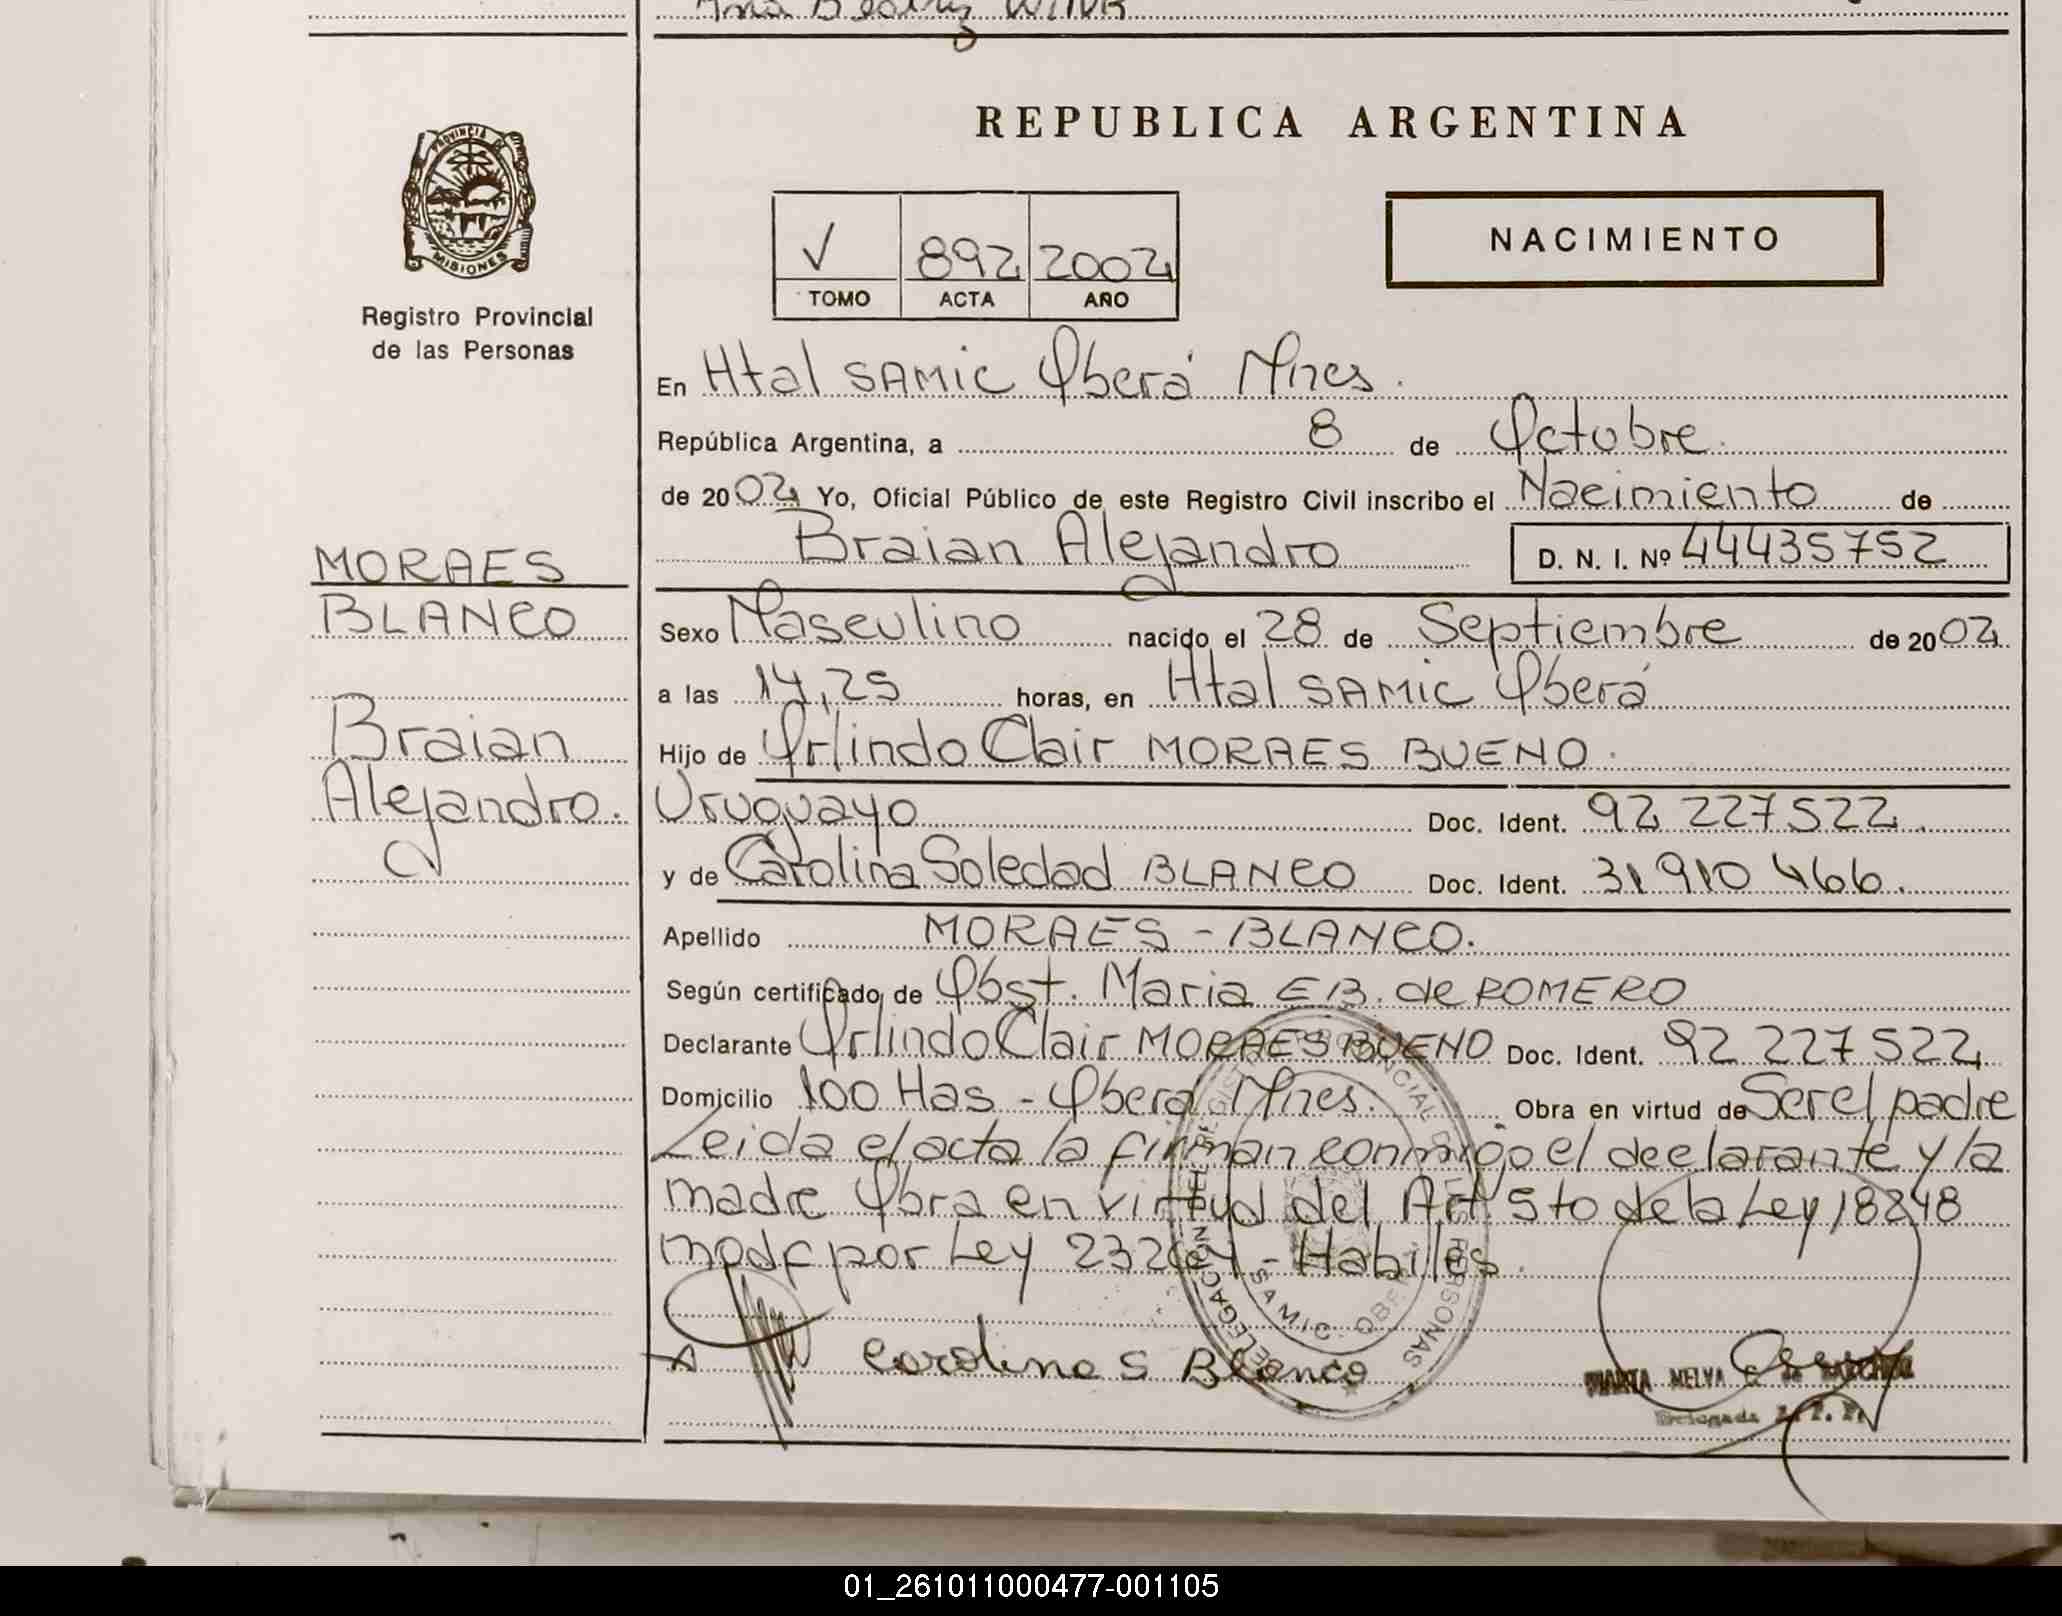 Ana Beatriz
REPUBLICA ARGENTINA
PROVINCIA DE
MISIONES
Registro Provincial
de las Personas
V 892 2002
TOMO ACTA AÑO
NACIMIENTO
En Htal SAMIC Oberá Mnes.
República Argentina, a 8 de Octubre.
de 2002 Yo, Oficial Público de este Registro Civil inscribo el Nacimiento de
Braian Alejandro D. N. I. Nº 44435752
MORAES
BLANCO
Braian
Alejandro.
Sexo Masculino nacido el 28 de Septiembre de 2002
a las 14,25 horas, en Htal SAMIC Oberá
Hijo de Orlindo Clair MORAES BUENO.
Uruguayo Doc. Ident. 92 227522.
y de Carolina Soledad BLANCO Doc. Ident. 31 910 466.
Apellido MORAES - BLANCO.
Según certificado de Obst. Maria E B. de ROMERO
Declarante Orlindo Clair MORAES BUENO Doc. Ident. 92 227 522
Domicilio 100 Has - Obera Mnes. Obra en virtud de Ser el padre
Leida el acta la firman conmigo el declarante y la
madre Obra en virtud del Art 5to de la Ley 18248
modf por Ley 23264 - Habilles.
Carolina S Blanco
DELEGACION REGISTRO PROVINCIAL DE LAS PERSONAS
SAMIC - OBERA
MARTA MELVA C. de
Delegada R. P. P.
01_261011000477-001105